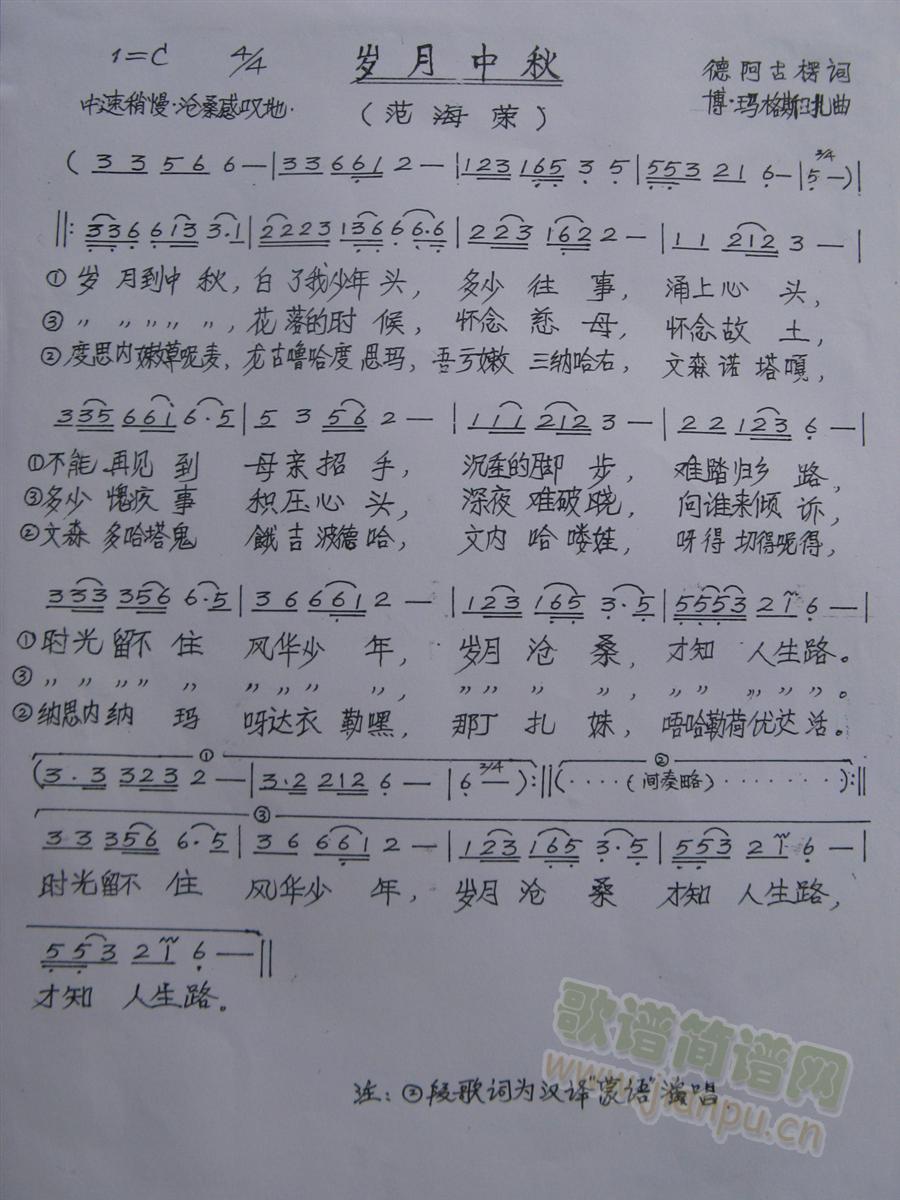 1=C 4/4 岁月中秋 德阿古楞词
中速稍慢·沧桑感叹地· (范海荣) 博·玛格斯扎曲
( 3 3 5 6 6 — | 3 3 6 6 1 2 — | 1 2 3 1 6 5 3 5 | 5 5 3 2 1 6 — | 3/4 5 — ) |
‖: 3 3 6 6 1 3 3 · 1 | 2 2 2 3 1 3 6 6 6 · 6 | 2 2 3 1 6 2 2 — | 1 1 2 1 2 3 — |
① 岁 月到中 秋, 白了我少年 头, 多少 往 事, 涌上心 头,
③ 〃 〃 〃 〃 〃, 花落的时 候, 怀念 慈 母, 怀念故 土,
② 度思内嫩 呢麦, 龙古噜哈度 思玛, 吾亏嫩 三纳哈右, 文森诺塔嘎,
3 3 5 6 6 1 6 · 5 | 5 3 5 6 2 — | 1 1 1 2 1 2 3 — | 2 2 1 2 3 6 — |
①不能 再见 到 母亲招 手, 沉重的脚 步, 难踏归乡 路,
③多少 愧疚 事 积压心 头, 深夜 难破晓, 问谁来倾 诉,
②文森 多哈塔鬼 餓吉波德哈, 文内 哈 喽娃, 呀得 切得呢得,
3 3 3 3 5 6 6 · 5 | 3 6 6 6 1 2 — | 1 2 3 1 6 5 3 · 5 | 5 5 5 3 2 1 6 — |
① 时光 留不 住 风华少 年, 岁月 沧 桑, 才知 人生路。
③ 〃 〃 〃 〃 〃 〃 〃 〃 〃, 〃 〃 〃 〃, 〃 〃 〃 〃 〃。
② 纳思内纳 玛 呀达衣 勒嘿, 那丁 扎 姝, 唔哈勒荷优达 活。
①
②
( 3 · 3 3 2 3 2 — | 3 · 2 2 1 2 6 — | 3/4 6 — ) :‖ ( · · · · · (间奏略) · · · · · · ) :‖
③
3 3 3 5 6 6 · 5 | 3 6 6 6 1 2 — | 1 2 3 1 6 5 3 · 5 | 5 5 3 2 1 6 — |
时光留不 住 风华少 年, 岁月 沧 桑 才知 人生路,
5 5 3 2 1 6 — ‖
才知 人生路。
歌谱简谱网
www.jianpu.cn
注: ②段歌词为汉译"蒙语"演唱